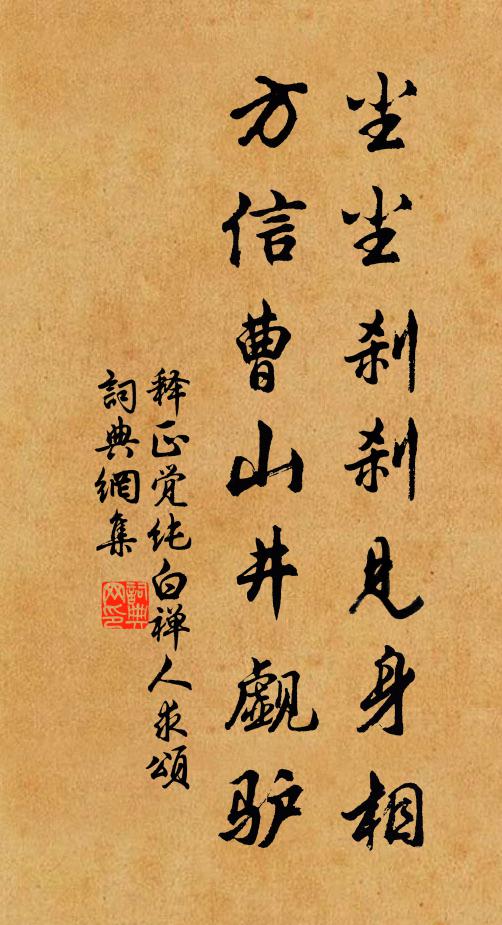 尘尘刹刹见身相
方信曹山井觑驴
释正觉纯白禅人求颂
词典网集
词典网印